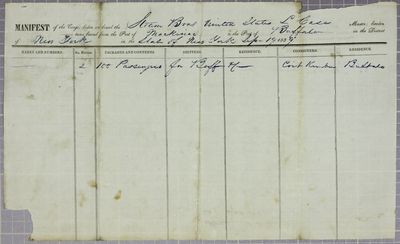 MANIFEST of the Cargo, laden on board the Steam Boat United States L Case Master, burden
tons, bound from the Port of Mackinac in the Port of Buffalo in the District
of New York in the State of New York
MARKS AND NUMBERS. No. Entries. PACKAGES AND CONTENTS. SHIPPERS. RESIDENCE. CONSIGNEES. RESIDENCE.
2 100 Passengers for Buff Buffalo